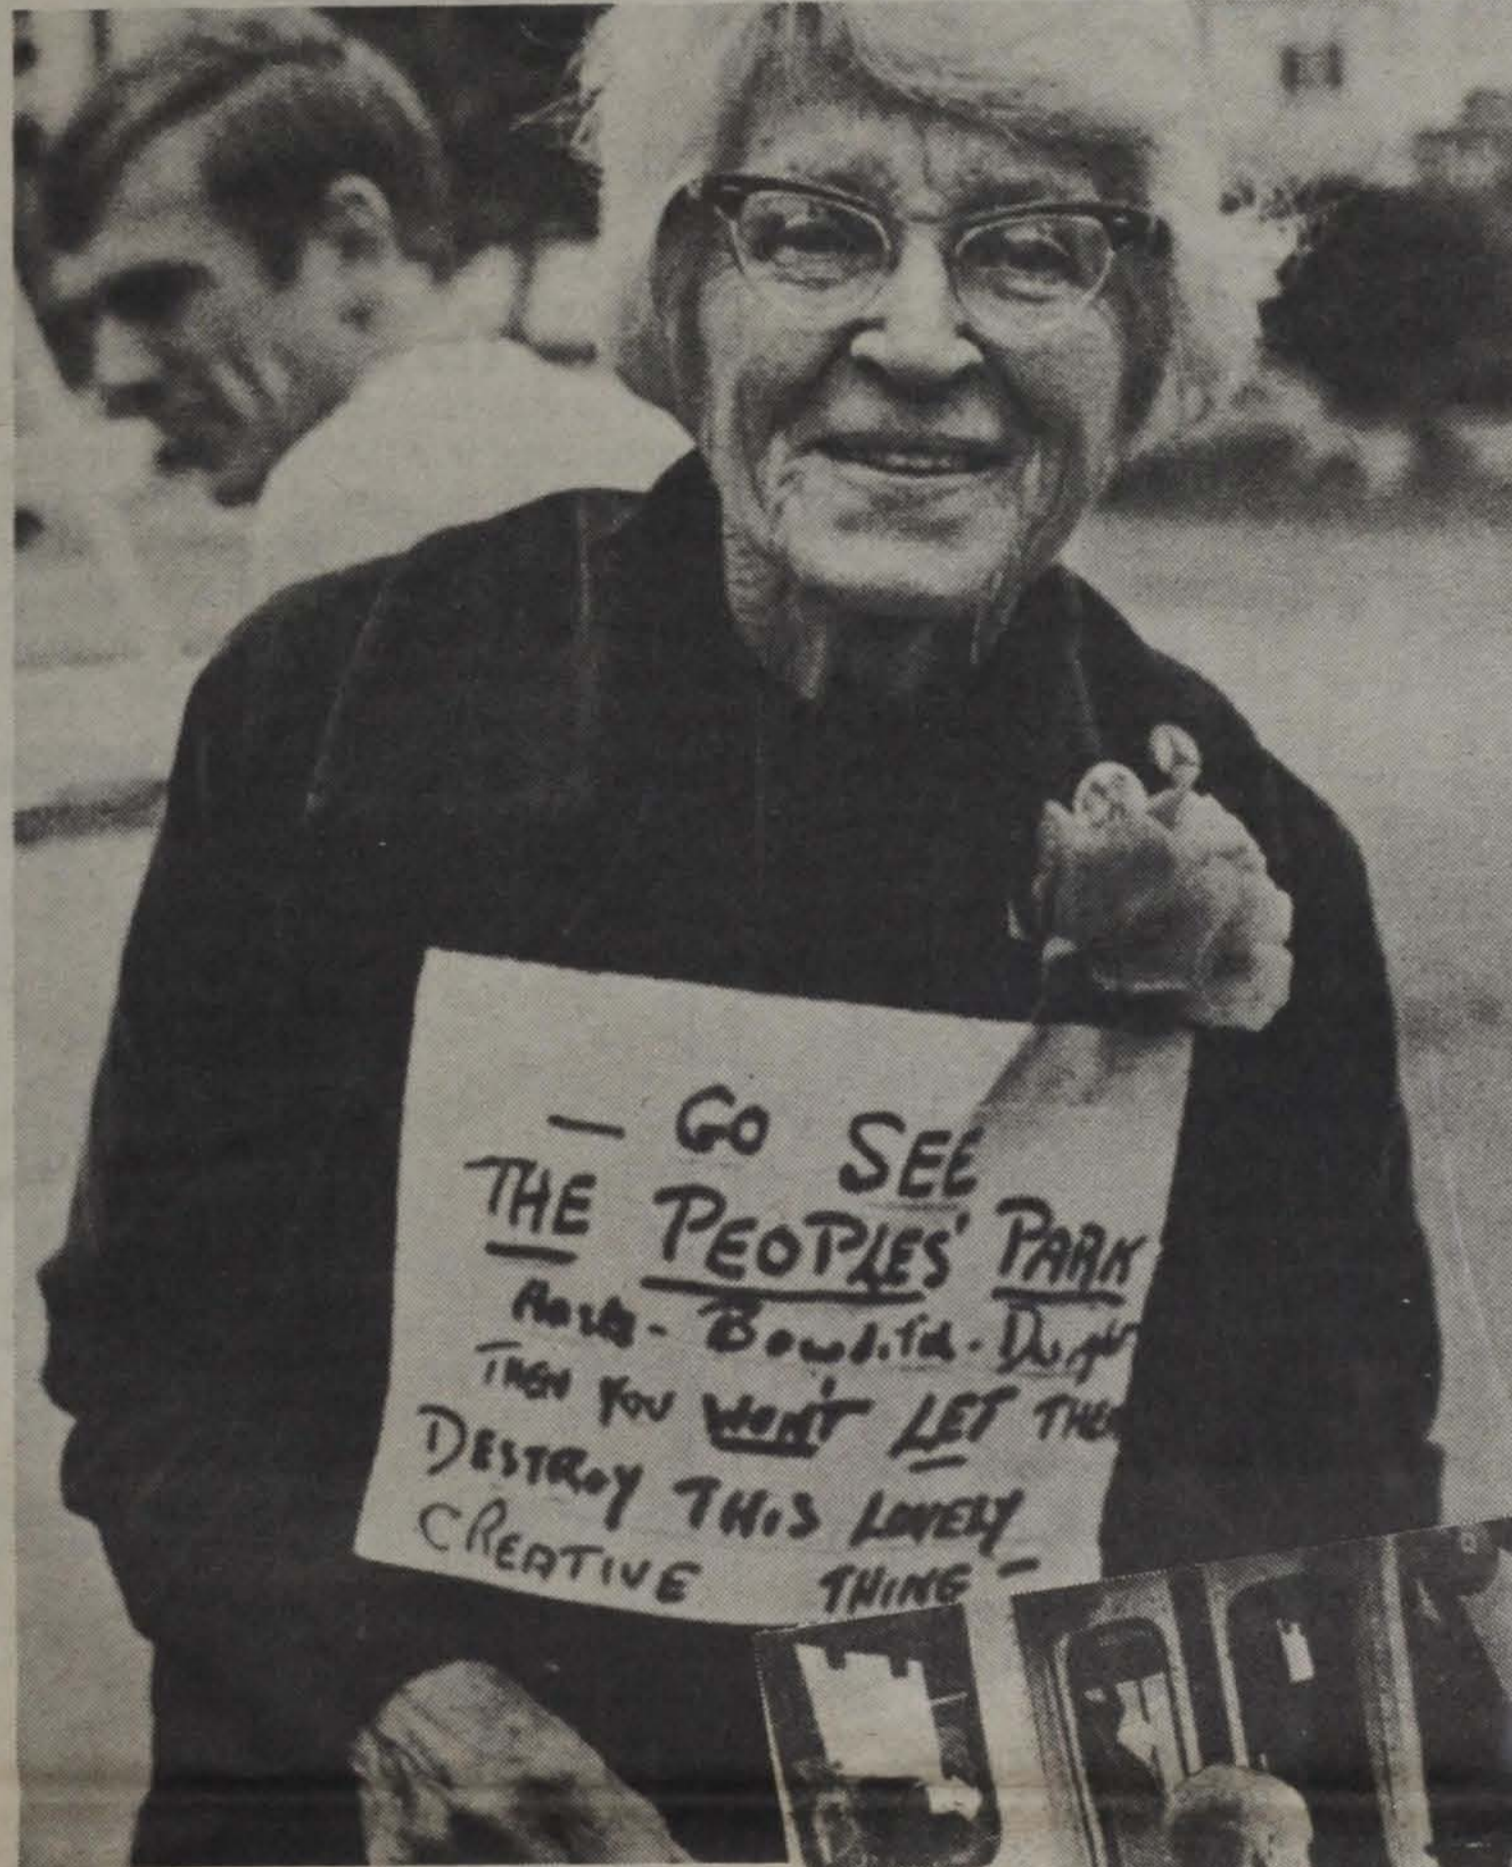 — GO SEE
THE PEOPLES' PARK
Haste - Bowditch - Dwight
THEN YOU WON'T LET THEM
DESTROY THIS LOVELY
CREATIVE THING —